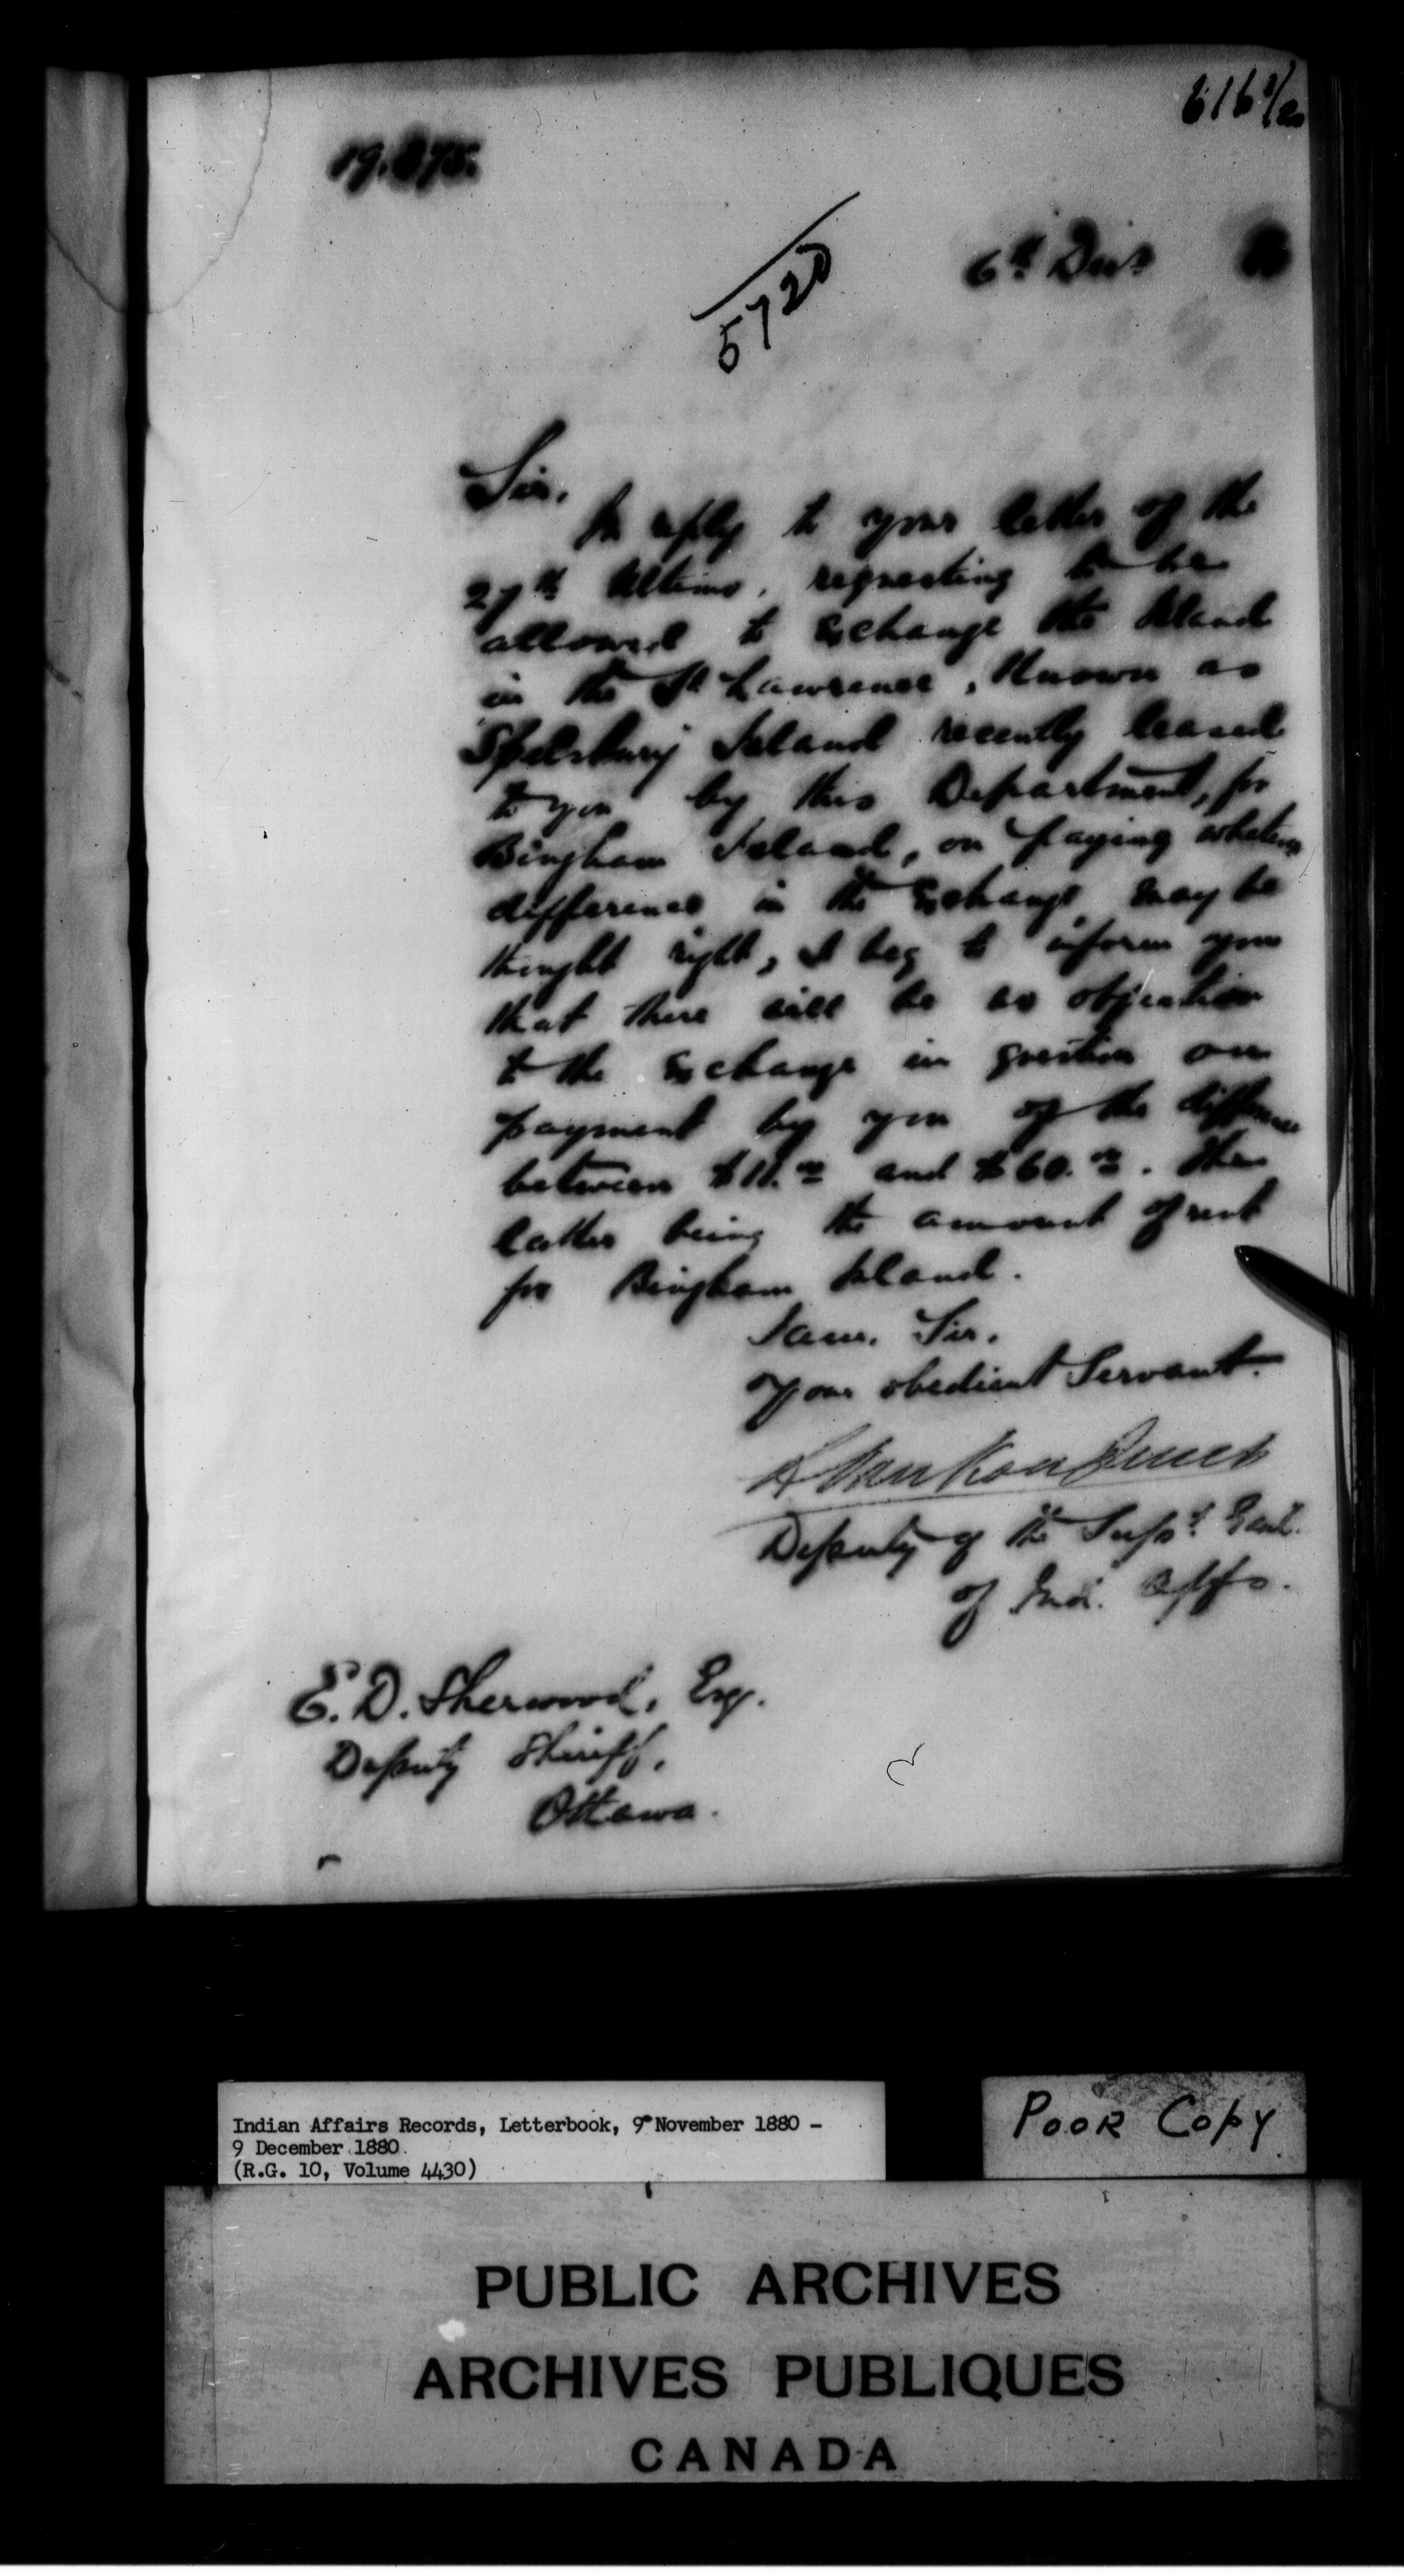 616 1/2
19.
5720
6th Decr 80
Sir,
In reply to your letter of the
27th Ultimo, requesting to be
allowed to Exchange the Island
in the St Lawrence, Known as
Spelsbury Island recently leased
to you by this Department, for
Bingham Island, on paying whatever
difference in the Exchange may be
thought right, I beg to inform you
that there will be no objection
to the Exchange in question on
payment by you of the difference
between $11.00 and $60.00. The
latter being the amount of rent
for Bingham Island.
I am, Sir,
Your obedient Servant.
L VanKoughnet
Deputy of the Supt. Genl.
of Ind. Affs.
E. D. Sherwood, Esq.
Deputy Sheriff,
Ottawa.
Indian Affairs Records, Letterbook, 9 November 1880 -
9 December 1880.
(R.G. 10, Volume 4430)
POOR COPY
PUBLIC ARCHIVES
ARCHIVES PUBLIQUES
CANADA